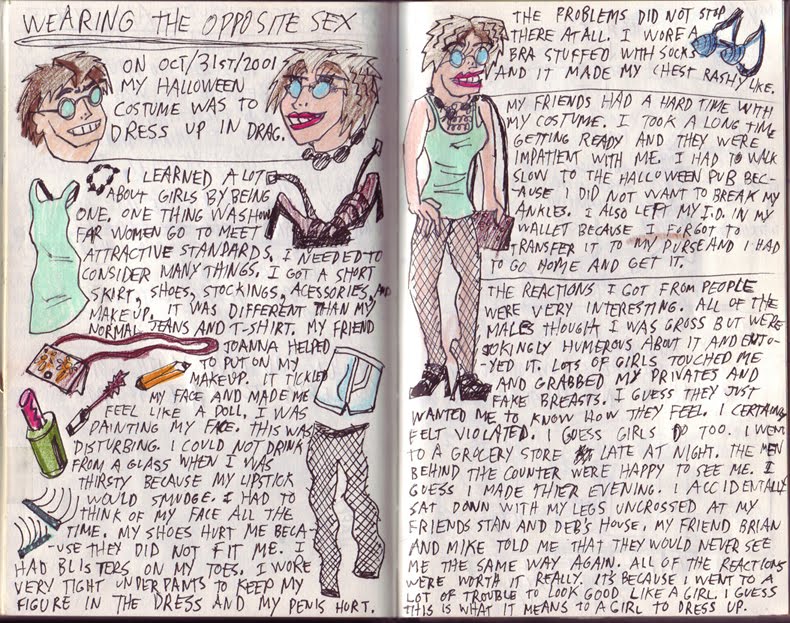 WEARING THE OPPOSITE SEX
ON OCT/31ST/2001
MY HALLOWEEN
COSTUME WAS TO
DRESS UP IN DRAG.
I LEARNED A LOT
ABOUT GIRLS BY BEING
ONE. ONE THING WAS HOW
FAR WOMEN GO TO MEET
ATTRACTIVE STANDARDS. I NEEDED TO
CONSIDER MANY THINGS. I GOT A SHORT
SKIRT, SHOES, STOCKINGS, ACESSORIES, AND
MAKE UP. IT WAS DIFFERENT THAN MY
NORMAL JEANS AND T-SHIRT. MY FRIEND
JOANNA HELPED
TO PUT ON MY
MAKEUP. IT TICKLED
MY FACE AND MADE ME
FEEL LIKE A DOLL. I WAS
PAINTING MY FACE. THIS WAS
DISTURBING. I COULD NOT DRINK
FROM A GLASS WHEN I WAS
THIRSTY BECAUSE MY LIPSTICK
WOULD SMUDGE. I HAD TO
THINK OF MY FACE ALL THE
TIME. MY SHOES HURT ME BECA-
-USE THEY DID NOT FIT ME. I
HAD BLISTERS ON MY TOES. I WORE
VERY TIGHT UNDERPANTS TO KEEP MY
FIGURE IN THE DRESS AND MY PENIS HURT.
THE PROBLEMS DID NOT STOP
THERE AT ALL. I WORE A
BRA STUFFED WITH SOCKS
AND IT MADE MY CHEST RASHY LIKE.
MY FRIENDS HAD A HARD TIME WITH
MY COSTUME. I TOOK A LONG TIME
GETTING READY AND THEY WERE
IMPATIENT WITH ME. I HAD TO WALK
SLOW TO THE HALLOWEEN PUB BEC-
-AUSE I DID NOT WANT TO BREAK MY
ANKLES. I ALSO LEFT MY I.D. IN MY
WALLET BECAUSE I FORGOT TO
TRANSFER IT TO MY PURSE AND I HAD
TO GO HOME AND GET IT.
THE REACTIONS I GOT FROM PEOPLE
WERE VERY INTERESTING. ALL OF THE
MALES THOUGHT I WAS GROSS BUT WERE
JOKINGLY HUMEROUS ABOUT IT AND ENJO-
-YED IT. LOTS OF GIRLS TOUCHED ME
AND GRABBED MY PRIVATES AND
FAKE BREASTS. I GUESS THEY JUST
WANTED ME TO KNOW HOW THEY FEEL. I CERTAINLY
FELT VIOLATED. I GUESS GIRLS DO TOO. I WENT
TO A GROCERY STORE LATE AT NIGHT. THE MEN
BEHIND THE COUNTER WERE HAPPY TO SEE ME. I
GUESS I MADE THIER EVENING. I ACCIDENTALLY
SAT DOWN WITH MY LEGS UNCROSSED AT MY
FRIENDS STAN AND DEB'S HOUSE. MY FRIEND BRIAN
AND MIKE TOLD ME THAT THEY WOULD NEVER SEE
ME THE SAME WAY AGAIN. ALL OF THE REACTIONS
WERE WORTH IT REALLY. IT'S BECAUSE I WENT TO A
LOT OF TROUBLE TO LOOK GOOD LIKE A GIRL. I GUESS
THIS IS WHAT IT MEANS TO A GIRL TO DRESS UP.